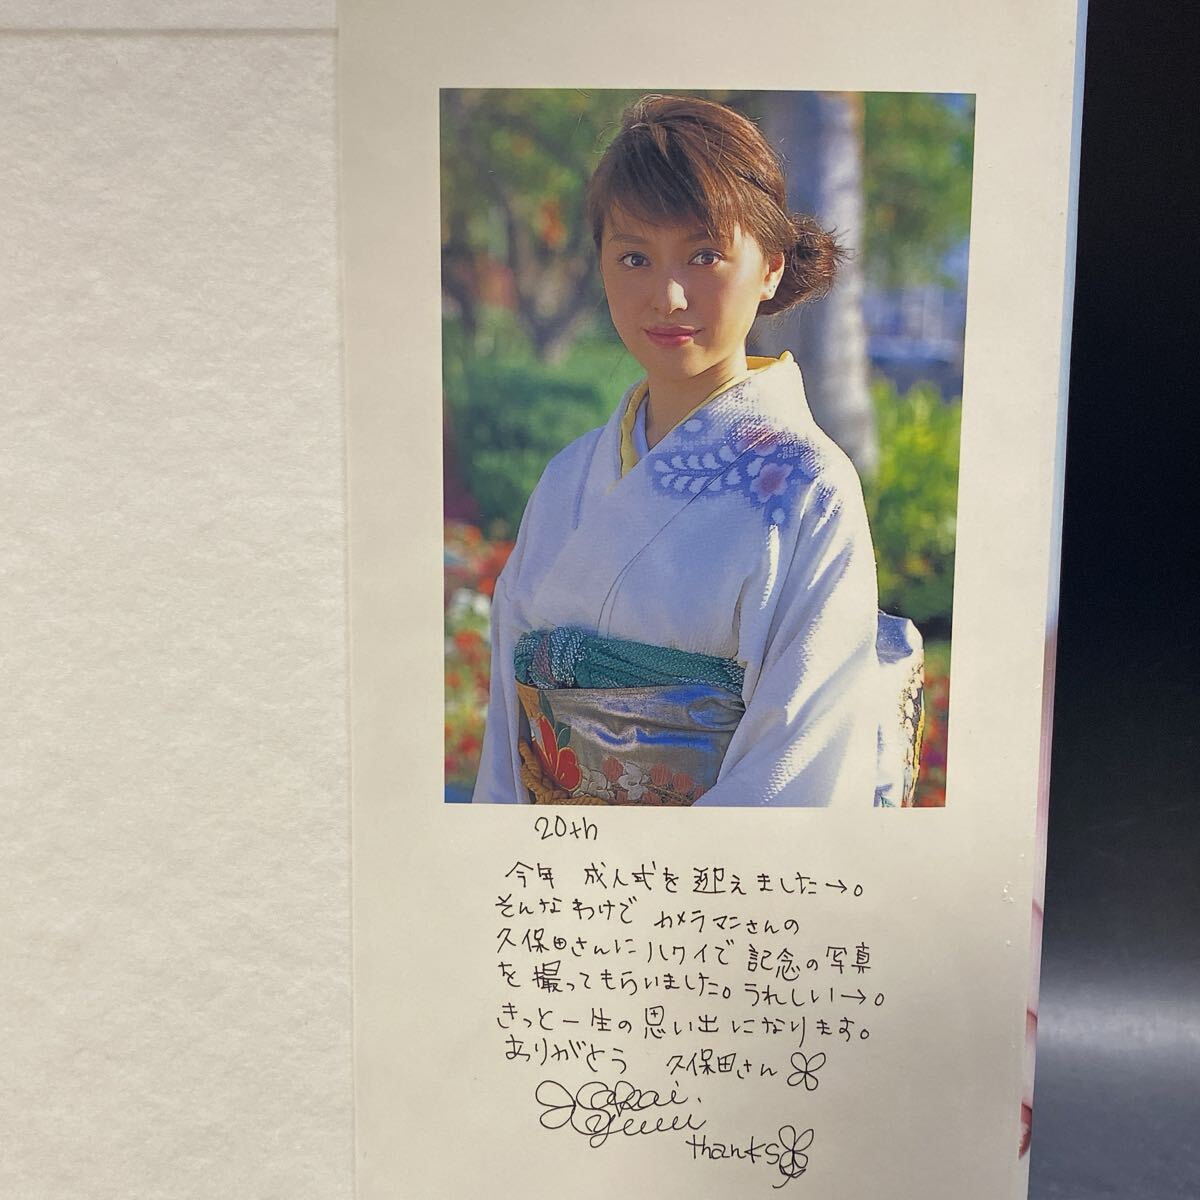 20th
今年 成人式を迎えました→。
そんなわけで カメラマンさんの
久保田さんにハワイで記念の写真
を撮ってもらいました。うれしい→。
きっと一生の思い出になります。
ありがとう 久保田さん
Sakai.
Yuuu
thanks